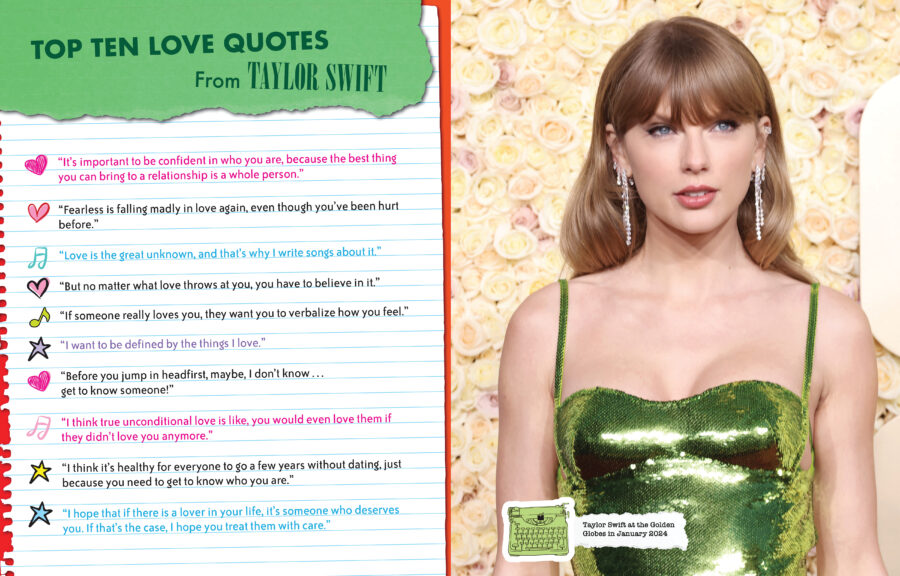 TOP TEN LOVE QUOTES
From TAYLOR SWIFT
“It’s important to be confident in who you are, because the best thing
you can bring to a relationship is a whole person.”
“Fearless is falling madly in love again, even though you’ve been hurt
before.”
“Love is the great unknown, and that’s why I write songs about it.”
“But no matter what love throws at you, you have to believe in it.”
“If someone really loves you, they want you to verbalize how you feel.”
“I want to be defined by the things I love.”
“Before you jump in headfirst, maybe, I don’t know . . .
get to know someone!”
“I think true unconditional love is like, you would even love them if
they didn’t love you anymore.”
“I think it’s healthy for everyone to go a few years without dating, just
because you need to get to know who you are.”
“I hope that if there is a lover in your life, it’s someone who deserves
you. If that’s the case, I hope you treat them with care.”
Taylor Swift at the Golden
Globes in January 2024